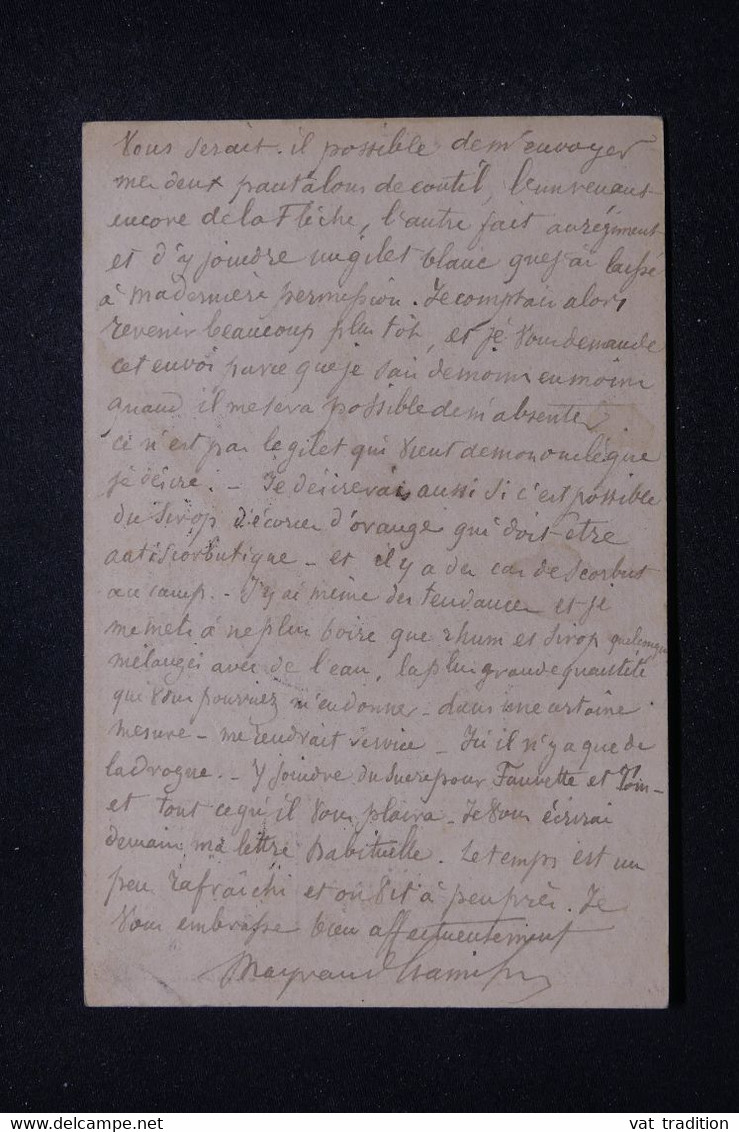 Vous serait-il possible de m'envoyer
mes deux pantalons de coutil, l'un venant
encore de la Flèche, l'autre fait au régiment
et d'y joindre un gilet blanc que j'ai laissé
à ma dernière permission. Je comptais alors
revenir beaucoup plus tôt, et je vous demande
cet envoi parce que je sais de moins en moins
quand il me sera possible de m'absenter
ce n'est pas le gilet qui vient de mon oncle que
je désire. - Je désirerais aussi si c'est possible
du sirop d'écorces d'orange qui doit être
antiscorbutique - et il y a des cas de scorbut
au camp. - J'y ai même des tendances et je
me mets à ne plus boire que rhum et sirop quelconque
mélangés avec de l'eau, la plus grande quantité
que vous pourriez m'en donner - dans une certaine
mesure - me rendrait service - Ici il n'y a que de
la drogue. - Y joindre du sucre pour Fauvette et
et tout ce qu'il vous plaira - Je vous écrirai
demain ma lettre habituelle. Le temps est un
peu rafraîchi et on vit à peu près. Je
vous embrasse bien affectueusement
vat tradition